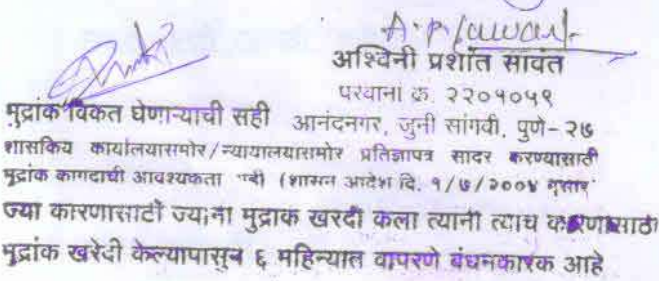 A. P. Sawant
अश्विनी प्रशांत सावंत
परवाना क्र. २२०१०५९
मुद्रांक विकत घेणाऱ्याची सही आनंदनगर, जुनी सांगवी, पुणे-२७
शासकिय कार्यालयासमोर/न्यायालयासमोर प्रतिज्ञापत्र सादर करण्यासाठी
मुद्रांक कागदाची आवश्यकता नाही (शासन आदेश दि. १/७/२००४ नुसार
ज्या कारणासाठी ज्यांना मुद्रांक खरेदी केला त्यांनी त्याच कारणासाठी
मुद्रांक खरेदी केल्यापासुन ६ महिन्यात वापरणे बंधनकारक आहे